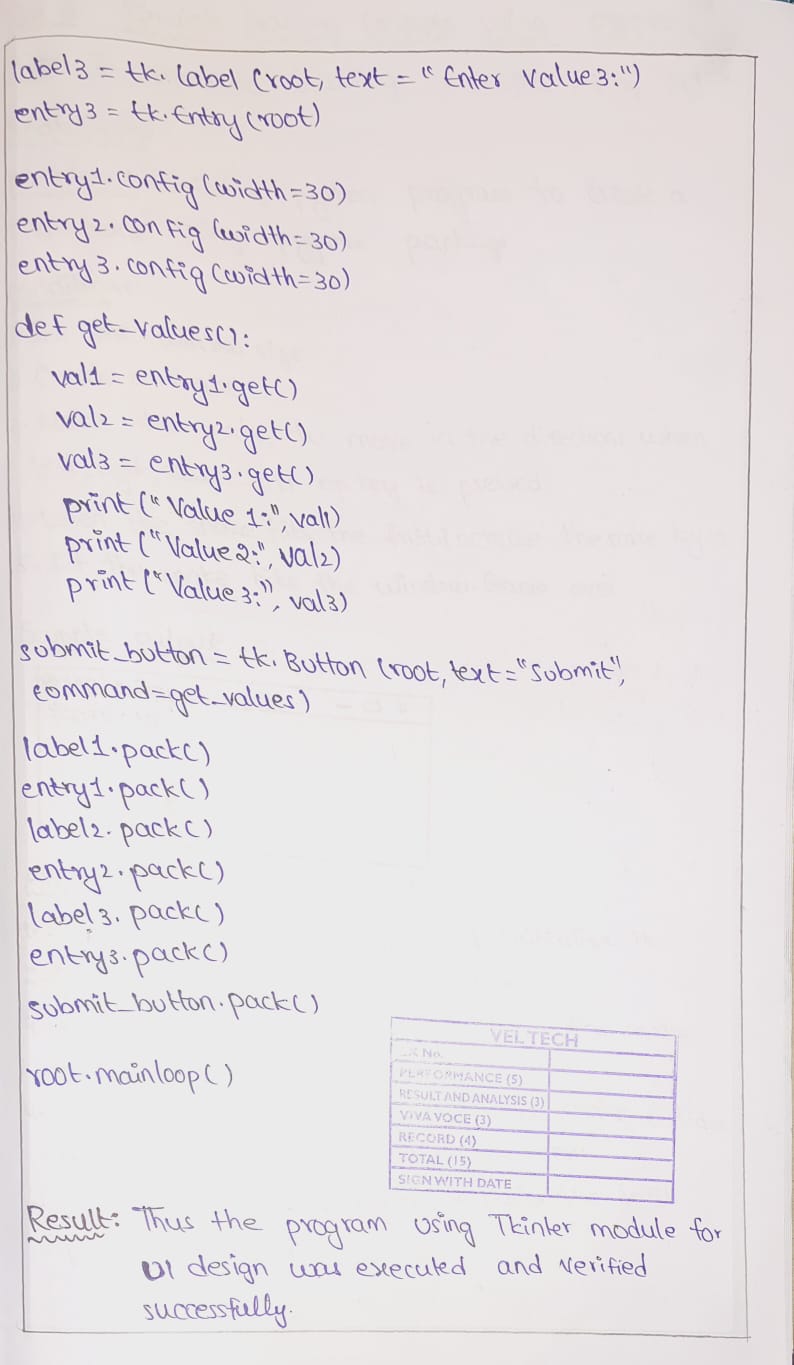 label3 = tk. Label (root, text = "Enter Value3:")
entry3 = tk.Entry(root)
entry1.config (width=30)
entry2.config (width=30)
entry3.config (width=30)
def get_values():
val1 = entry1.get()
val2 = entry2.get()
val3 = entry3.get()
print ("Value 1:", val1)
print ("Value2:", val2)
print ("Value3:", val3)
submit_button = tk. Button (root, text="Submit",
command=get_values)
label1.pack()
entry1.pack()
label2.pack()
entry2.pack()
label3.pack()
entry3.pack()
submit_button.pack()
root.mainloop()
VEL TECH
No.
PERFORMANCE (5)
RESULT AND ANALYSIS (3)
VIVA VOCE (3)
RECORD (4)
TOTAL (15)
SIGN WITH DATE
Result: Thus the program using Tkinter module for
UI design was executed and verified
successfully.